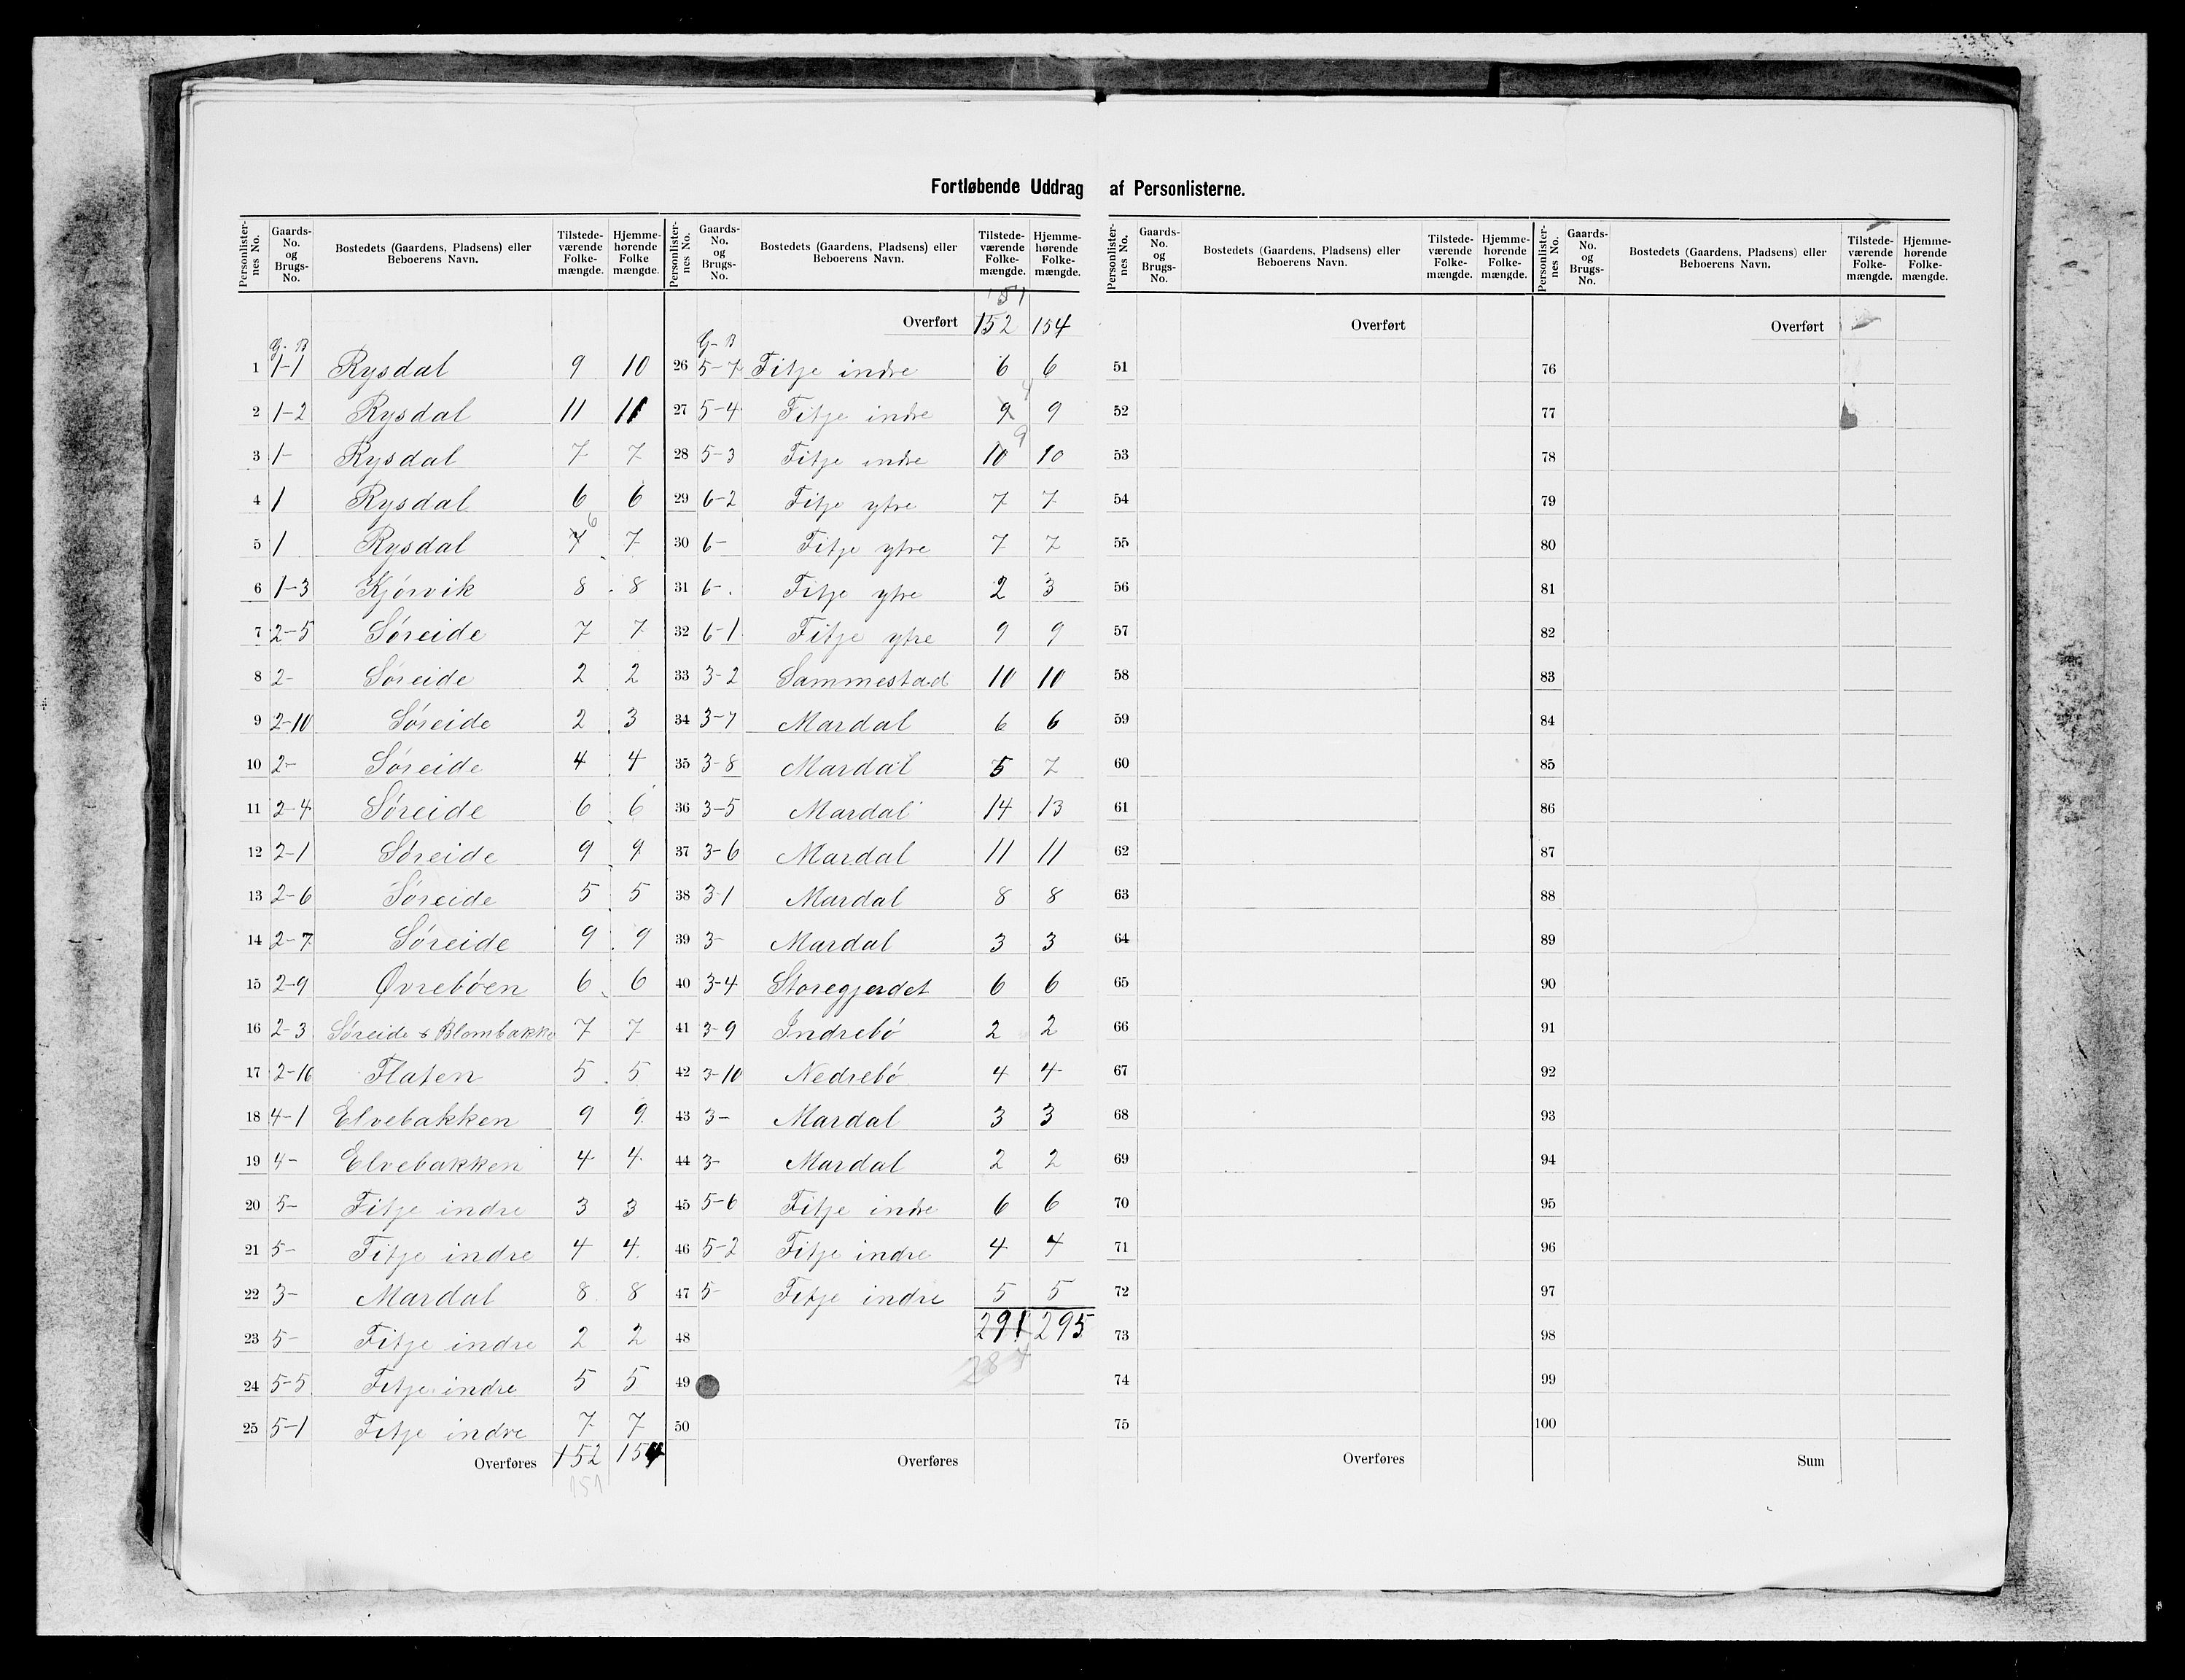 Fortløbende Uddrag af Personlisterne.
Personlister-nes No. | Gaards-No. og Brugs-No. | Bostedets (Gaardens, Pladsens) eller Beboerens Navn. | Tilstede-værende Folke-mængde. | Hjemme-hørende Folke mængde.
G. B
1 1-1 Rysdal 9 10
2 1-2 Rysdal 11 11
3 1- Rysdal 7 7
4 1 Rysdal 6 6
5 1 Rysdal 7 6 7
6 1-3 Kjørvik 8 8
7 2-5 Søreide 7 7
8 2- Søreide 2 2
9 2-10 Søreide 2 3
10 2- Søreide 4 4
11 2-4 Søreide 6 6
12 2-1 Søreide 9 9
13 2-6 Søreide 5 5
14 2-7 Søreide 9 9
15 2-9 Øvrebøen 6 6
16 2-3 Søreide & Blombakke 7 7
17 2-16 Flaten 5 5
18 4-1 Elvebakken 9 9
19 4- Elvebakken 4 4
20 5- Fitje indre 3 3
21 5- Fitje indre 4 4
22 3- Mardal 8 8
23 5- Fitje indre 2 2
24 5-5 Fitje indre 5 5
25 5-1 Fitje indre 7 7
Overføres 152 154
151
Personlister-nes No. | Gaards-No. og Brugs-No. | Bostedets (Gaardens, Pladsens) eller Beboerens Navn. | Tilstede-værende Folke-mængde. | Hjemme-hørende Folke-mængde.
151
Overført 152 154
G. B
26 5-7 Fitje indre 6 6
27 5-4 Fitje indre 9 9
28 5-3 Fitje indre 10 9 10
29 6-2 Fitje ytre 7 7
30 6- Fitje ytre 7 7
31 6-. Fitje ytre 2 3
32 6-1 Fitje ytre 9 9
33 3-2 Sammestad 10 10
34 3-7 Mardal 6 6
35 3-8 Mardal 5 7
36 3-5 Mardal 14 13
37 3-6 Mardal 11 11
38 3-1 Mardal 8 8
39 3- Mardal 3 3
40 3-4 Storegjerdet 6 6
41 3-9 Indrebø 2 2
42 3-10 Nedrebø 4 4
43 3- Mardal 3 3
44 3- Mardal 2 2
45 5-6 Fitje indre 6 6
46 5-2 Fitje indre 4 4
47 5- Fitje indre 5 5
48 291 295
49
50
Overføres
Personlister-nes No. | Gaards-No. og Brugs-No. | Bostedets (Gaardens, Pladsens) eller Beboerens Navn. | Tilstede-værende Folke-mængde. | Hjemme-hørende Folke-mængde.
Overført
51
52
53
54
55
56
57
58
59
60
61
62
63
64
65
66
67
68
69
70
71
72
73
74
75
Overføres
Personlister-nes No. | Gaards-No. og Brugs-No. | Bostedets (Gaardens, Pladsens) eller Beboerens Navn. | Tilstede-værende Folke-mængde. | Hjemme-hørende Folke-mængde.
Overført
76
77
78
79
80
81
82
83
84
85
86
87
88
89
90
91
92
93
94
95
96
97
98
99
100
Sum